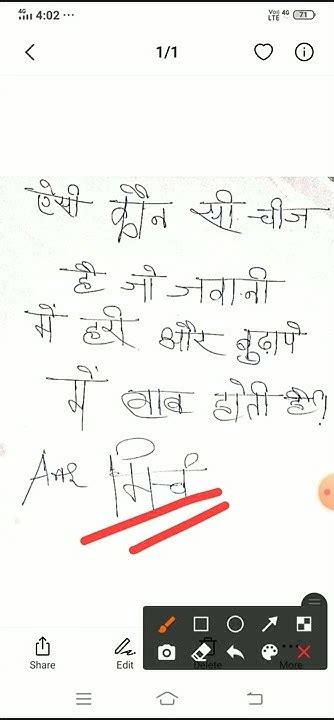 4G 4:02 ... Voo) 4G LTE 71
1/1
ऐसी कौन सी चीज
है जो जवानी
में हरी और बुढ़ापे
में लाल होती है?
Ans मिर्च
Share Edit Delete More